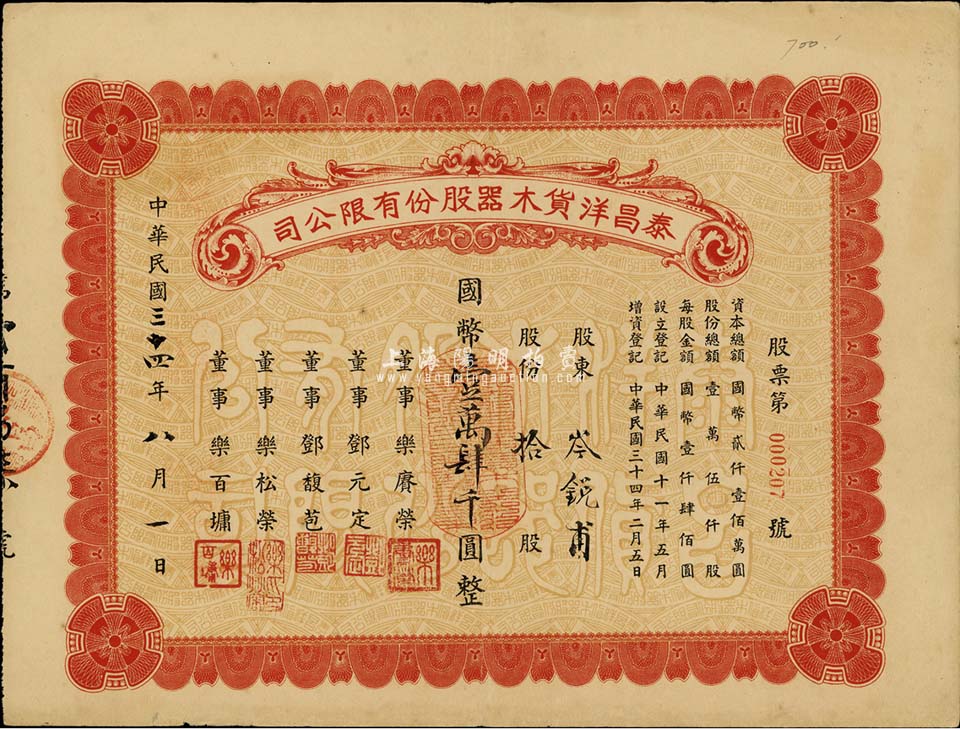 700.
泰昌洋貨木器股份有限公司
股票第 000207 號
資本總額 國幣貳仟壹佰萬圓
股份總額 壹萬伍仟股
每股金額 國幣壹仟肆佰圓
設立登記 中華民國十一年五月
增資登記 中華民國三十四年二月五日
股東 岑銳甫
股份 拾 股
國幣壹萬肆千圓整
董事 樂賡榮
董事 鄧元定
董事 鄧馥苞
董事 樂松榮
董事 樂百墉
中華民國三十四年八月一日
上海陽明拍賣
www.yangmingauction.com